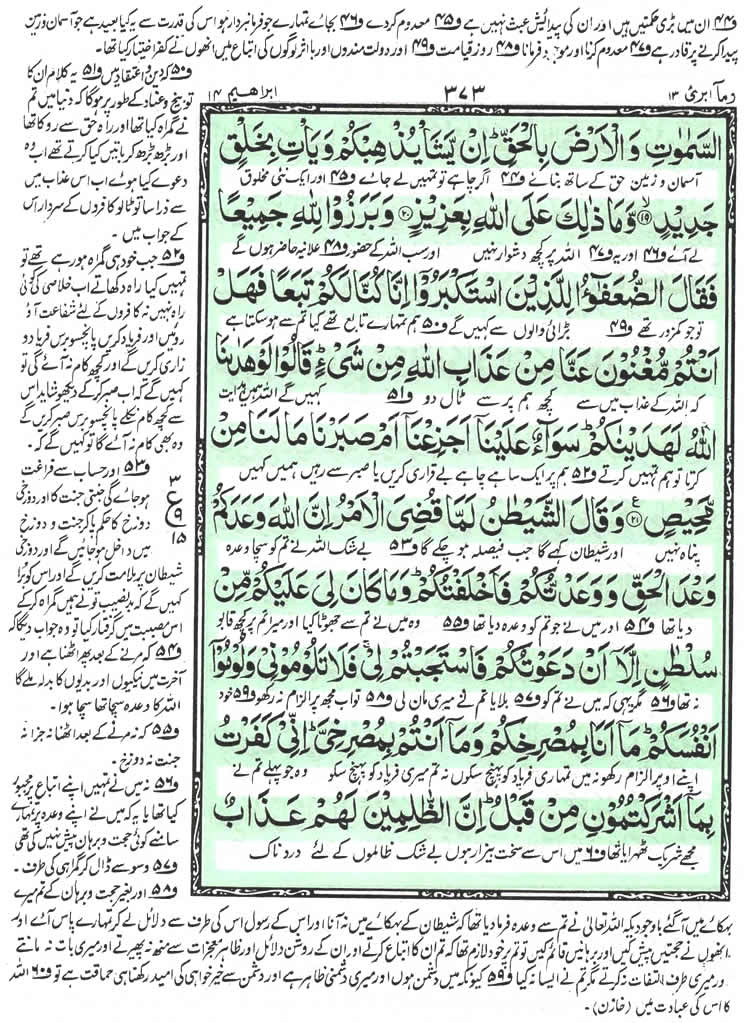 ف۴۴ ان میں بڑی حکمتیں ہیں اور ان کی پیدائش عبث نہیں ہے ف۴۵ معدوم کردے ف۴۶ بجائے تمہارے جو فرمانبردار ہو اس کی قدرت سے یہ کیا بعید ہے جو آسمان و زمین
پیدا کرنے پر قادر ہے ف۴۷ معدوم کرنا اور موجود فرمانا ف۴۸ روز قیامت ف۴۹ اور دولت مندوں اور با اثر لوگوں کی اتباع میں انھوں نے کفر اختیار کیا تھا۔
ف۵۰ کہ دین و اعتقاد میں ف۵۱ یہ کلام ان کا
توبیخ و عناد کے طور پر ہوگا کہ دنیا میں تم
نے گمراہ کیا تھا اور راہ حق سے روکا تھا
اور بڑھ بڑھ کر باتیں کیا کرتے تھے اب وہ
دعوے کیا ہوئے اب اس عذاب میں
سے ذرا سا تو ٹالو کافروں کے سردار اس
کے جواب میں۔
ف۵۲ جب خود ہی گمراہ ہو رہے تھے تو
تمہیں کیا راہ دکھاتے اب خلاصی کی کوئی
راہ نہیں نہ کافروں کے لئے شفاعت آؤ
روئیں اور فریاد کریں پانچسو برس فریاد و
زاری کریں گے اور کچھ کام نہ آئے گی تو
کہیں گے کہ اب صبر کر کے دیکھو شاید اس
سے کچھ کام نکلے پانچسو برس صبر کریں گے
وہ بھی کام نہ آئے گا تو کہیں گے کہ۔
ف۵۳ اور حساب سے فراغت
ہو جائے گی جنتی جنت کا اور دوزخی
دوزخ کا حکم پا کر جنت و دوزخ
میں داخل ہو جائیں گے اور دوزخی
شیطان پر ملامت کریں گے اور اس کو برا
کہیں گے کہ بد نصیب تو نے ہمیں گمراہ کر کے
اس مصیبت میں گرفتار کیا تو وہ جواب دیگا کہ
ف۵۴ کہ مرنے کے بعد پھر اٹھنا ہے اور
آخرت میں نیکیوں اور بدیوں کا بدلہ ملے گا
اللہ کا وعدہ سچا تھا سچا ہوا۔
ف۵۵ کہ نہ مرنے کے بعد اٹھنا نہ جزا نہ
جنت نہ دوزخ۔
ف۵۶ نہ میں نے تمہیں اپنے اتباع پر مجبور
کیا تھا یا یہ کہ میں نے اپنے وعدہ پر تمہارے
سامنے کوئی حجت و برہان پیش نہیں کی تھی
ف۵۷ وسوسے ڈال کر گمراہی کی طرف۔
ف۵۸ اور بغیر حجت و برہان کے تم میرے
وما ابرئ ۱۳
۳۷۳
ابراهیم ۱۴
السَّمٰوٰتِ وَالْاَرْضَ بِالْحَقِّ ؕ اِنْ یَّشَاْ یُذْهِبْكُمْ وَیَاْتِ بِخَلْقٍ
آسمان و زمین حق کے ساتھ بنائے ف۴۴ اگر چاہے تو تمہیں لے جائے ف۴۵ اور ایک نئی مخلوق
جَدِیْدٍ ۙ﴿۱۹﴾ وَّمَا ذٰلِكَ عَلَی اللّٰهِ بِعَزِیْزٍ ﴿۲۰﴾ وَبَرَزُوْا لِلّٰهِ جَمِیْعًا
لے آئے ف۴۶ اور یہ ف۴۷ اللہ پر کچھ دشوار نہیں اور سب اللہ کے حضور ف۴۸ علانیہ حاضر ہوں گے
فَقَالَ الضُّعَفٰٓؤُا لِلَّذِیْنَ اسْتَكْبَرُوْٓا اِنَّا كُنَّا لَكُمْ تَبَعًا فَهَلْ
تو جو کمزور تھے ف۴۹ بڑائی والوں سے کہیں گے ف۵۰ ہم تمہارے تابع تھے کیا تم سے ہوسکتا ہے
اَنْتُمْ مُّغْنُوْنَ عَنَّا مِنْ عَذَابِ اللّٰهِ مِنْ شَیْءٍ ؕ قَالُوْا لَوْ هَدٰىنَا
کہ اللہ کے عذاب میں سے کچھ ہم پر سے ٹال دو ف۵۱ کہیں گے اللہ ہمیں ہدایت
اللّٰهُ لَهَدَیْنٰكُمْ ؕ سَوَآءٌ عَلَیْنَآ اَجَزِعْنَآ اَمْ صَبَرْنَا مَا لَنَا مِنْ
کرتا تو ہم تمہیں کرتے ف۵۲ ہم پر ایک سا ہے چاہے بے قراری کریں یا صبر سے رہیں ہمیں کہیں
مَّحِیْصٍ ﴿۲۱﴾ وَقَالَ الشَّیْطٰنُ لَمَّا قُضِیَ الْاَمْرُ اِنَّ اللّٰهَ وَعَدَكُمْ
پناہ نہیں اور شیطان کہے گا جب فیصلہ ہو چکے گا ف۵۳ بے شک اللہ نے تم کو سچا وعدہ
وَعْدَ الْحَقِّ وَوَعَدْتُّكُمْ فَاَخْلَفْتُكُمْ ؕ وَمَا كَانَ لِیَ عَلَیْكُمْ مِّنْ
دیا تھا ف۵۴ اور میں نے جو تم کو وعدہ دیا تھا ف۵۵ وہ میں نے تم سے جھوٹا کیا اور میرا تم پر کچھ قابو
سُلْطٰنٍ اِلَّآ اَنْ دَعَوْتُكُمْ فَاسْتَجَبْتُمْ لِیْ ۚ فَلَا تَلُوْمُوْنِیْ وَلُوْمُوْٓا
نہ تھا ف۵۶ مگر یہی کہ میں نے تم کو ف۵۷ بلایا تم نے میری مان لی ف۵۸ تو اب مجھ پر الزام نہ رکھو ف۵۹ خود
اَنْفُسَكُمْ ؕ مَآ اَنَا بِمُصْرِخِكُمْ وَمَآ اَنْتُمْ بِمُصْرِخِیَّ ؕ اِنِّیْ كَفَرْتُ
اپنے اوپر الزام رکھو نہ میں تمہاری فریاد کو پہنچ سکوں نہ تم میری فریاد کو پہنچ سکو وہ جو پہلے تم نے
بِمَآ اَشْرَكْتُمُوْنِ مِنْ قَبْلُ ؕ اِنَّ الظّٰلِمِیْنَ لَهُمْ عَذَابٌ
مجھے شریک ٹھہرایا تھا ف۶۰ میں اس سے سخت بیزار ہوں بے شک ظالموں کے لئے درد ناک
۳
ع
۹
۱۵
بہکائے میں آ گئے باوجود یکہ اللہ تعالیٰ نے تم سے وعدہ فرما دیا تھا کہ شیطان کے بہکائے میں نہ آنا اور اس کے رسول اس کی طرف سے دلائل لے کر تمہارے پاس آئے اور
انھوں نے حجتیں پیش کیں اور برہانیں قائم کیں تو تم پر خود لازم تھا کہ تم ان کا اتباع کرتے اور ان کے روشن دلائل اور ظاہر معجزات سے منھ نہ پھیرتے اور میری بات نہ مانتے
اور میری طرف التفات نہ کرتے مگر تم نے ایسا نہ کیا ف۵۹ کیونکہ میں دشمن ہوں اور میری دشمنی ظاہر ہے اور دشمن سے خیر خواہی کی امید رکھنا ہی حماقت ہے تو ف۶۰ اللہ
کا اس کی عبادت میں (خازن)۔